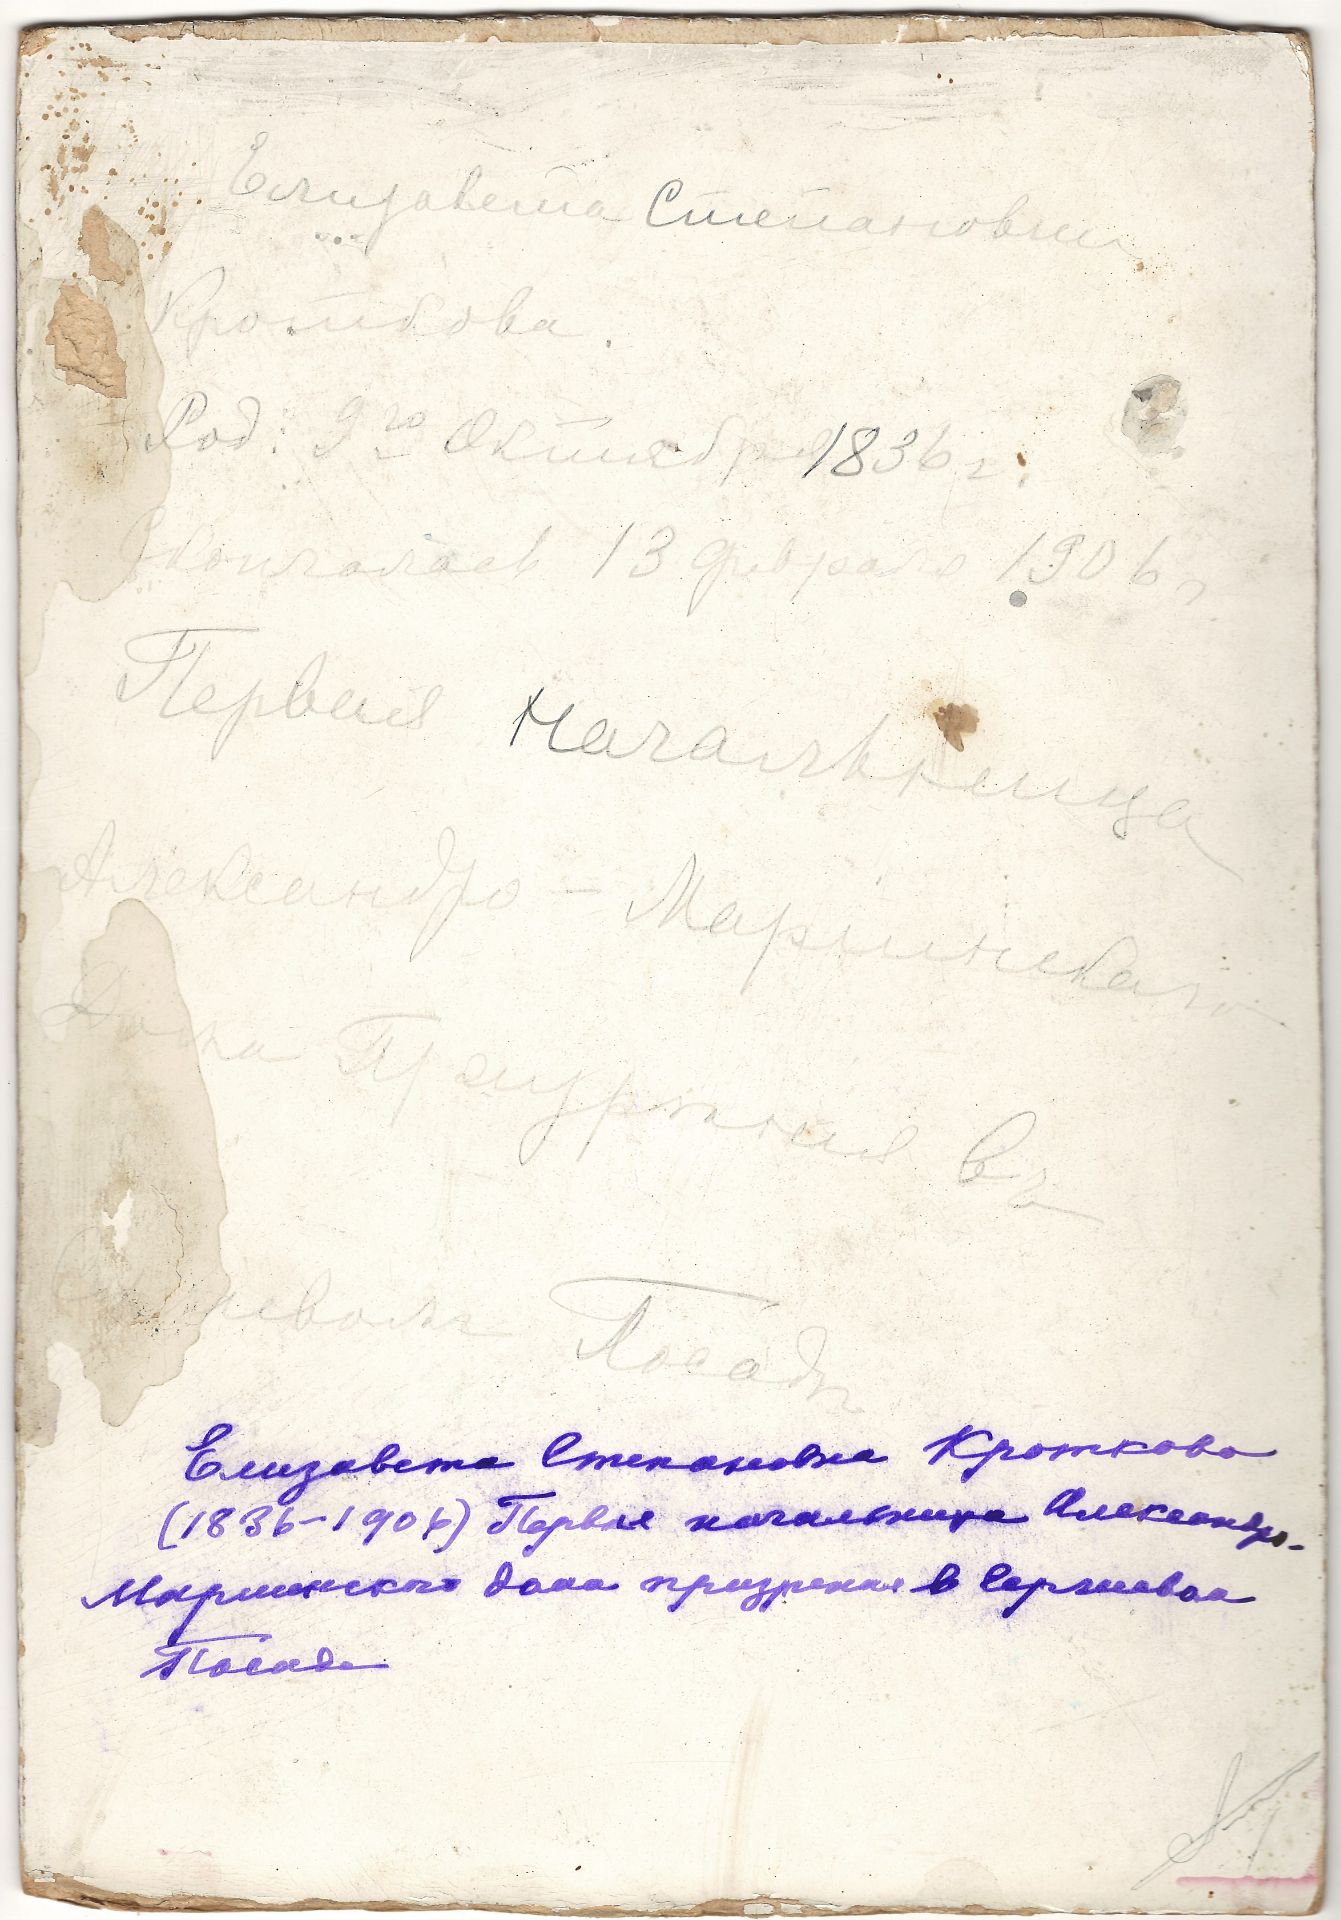 Елизавета Степановна
Кроткова.
Род: 9го Октября 1836 г.
Скончалась 13 февраля 1906 г.
Первая начальница
Александро-Маріинскаго
Дома Призрения въ
Сергиевомъ Посаде
Елизавета Степановна Кроткова
(1836-1906) Первая начальница Александро-
Мариинского дома призрения в Сергиевом
Посаде